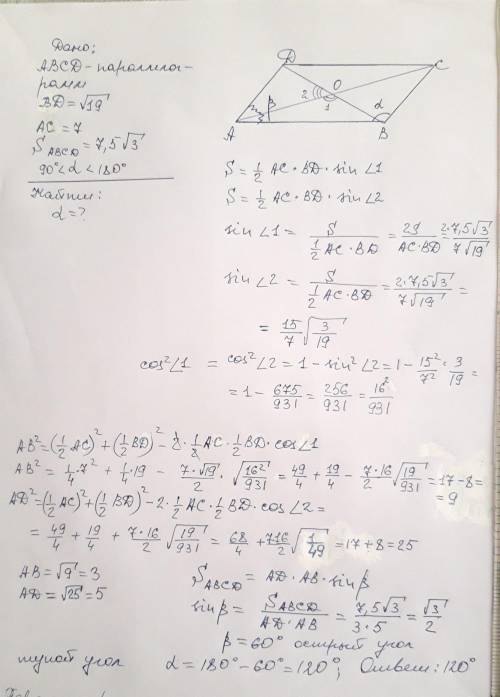 Дано:
ABCD - параллелог-
рамм
BD = √19
AC = 7
S ABCD = 7,5√3
90° < α < 180°
Найти:
α = ?
D
C
O
2
1
β
α
A
B
S = 1/2 AC · BD · sin ∠1
S = 1/2 AC · BD · sin ∠2
sin ∠1 = S / (1/2 AC · BD) = 2S / (AC · BD) = 2·7,5√3 / 7√19
sin ∠2 = S / (1/2 AC · BD) = 2·7,5√3 / 7√19 =
= 15/7 √(3/19)
cos²∠1 = cos²∠2 = 1 - sin²∠2 = 1 - 15²/7² · 3/19 =
= 1 - 675/931 = 256/931 = 16²/931
AB² = (1/2 AC)² + (1/2 BD)² - 2 · 1/2 AC · 1/2 BD · cos ∠1
AB² = 1/4 · 7² + 1/4 · 19 - 7·√19/2 · √(16²/931) = 49/4 + 19/4 - 7·16/2 √(19/931) = 17 - 8 =
= 9
AD² = (1/2 AC)² + (1/2 BD)² - 2 · 1/2 AC · 1/2 BD · cos ∠2 =
= 49/4 + 19/4 + 7·16/2 √(19/931) = 68/4 + 716/2 √(1/49) = 17 + 8 = 25
AB = √9 = 3
AD = √25 = 5
S ABCD = AD · AB · sin β
sin β = S ABCD / (AD · AB) = 7,5√3 / 3·5 = √3/2
β = 60° острый угол
тупой угол α = 180° - 60° = 120°; Ответ: 120°